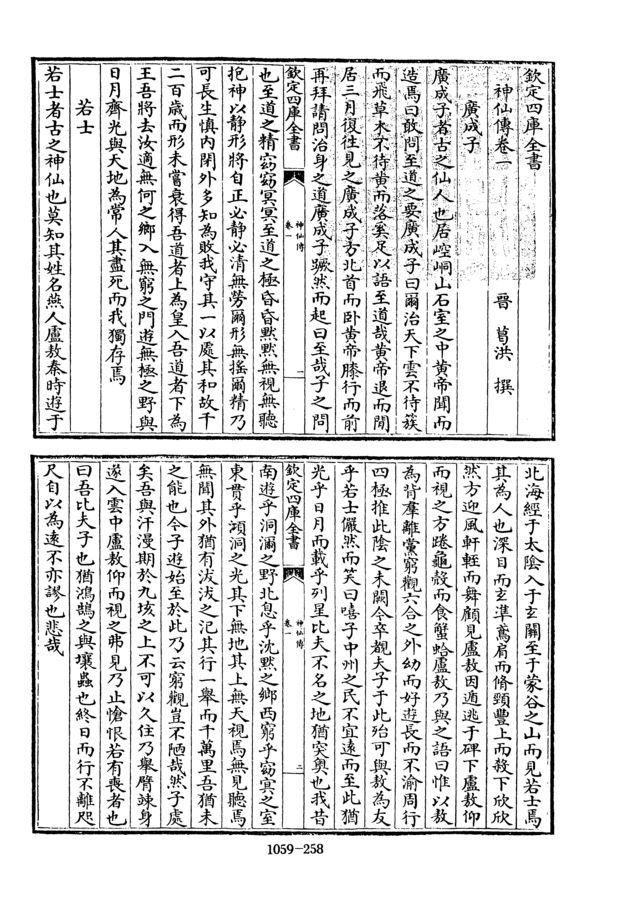 欽定四庫全書
神仙傳卷一
晉 葛洪 撰
廣成子
廣成子者古之仙人也居崆峒山石室之中黃帝聞而
造焉曰敢問至道之要廣成子曰爾治天下雲不待簇
而飛草木不待黃而落奚足以語至道哉黃帝退而閒
居三月復往見之廣成子方北首而卧黃帝膝行而前
再拜請問治身之道廣成子蹶然而起曰至哉子之問
欽定四庫全書
神仙傳
卷一
一
也至道之精窈窈冥冥至道之極昏昏黙黙無視無聽
抱神以静形將自正必静必清無勞爾形無搖爾精乃
可長生慎內閉外多知為敗我守其一以處其和故千
二百歲而形未嘗衰得吾道者上為皇入吾道者下為
王吾將去汝適無何之鄉入無窮之門遊無極之野與
日月齊光與天地為常人其盡死而我獨存焉
若士
若士者古之神仙也莫知其姓名燕人盧敖秦時遊于
北海經于太陰入于玄闕至于蒙谷之山而見若士焉
其為人也深目而玄準鳶肩而脩頸豐上而殺下欣欣
然方迎風軒輊而舞顧見盧敖因遁逃于碑下盧敖仰
而視之方踡龜殼而食蟹蛤盧敖乃與之語曰惟以敖
為背羣離黨窮觀六合之外幼而好遊長而不渝周行
四極推此陰之未闚今卒覩夫子于此殆可與敖為友
乎若士儼然而笑曰嘻子中州之民不宜遠而至此猶
光乎日月而載乎列星比夫不名之地猶突奥也我昔
欽定四庫全書
神仙傳
卷一
二
南遊乎洞濔之野北息乎沈黙之鄉西窮乎窈冥之室
東貫乎澒洞之光其下無地其上無天視焉無見聽焉
無聞其外猶有沷沷之汜其行一舉而千萬里吾猶未
之能也今子遊始至於此乃云窮觀豈不陋哉然子處
矣吾與汗漫期於九垓之上不可以久住乃舉臂竦身
遂入雲中盧敖仰而視之弗見乃止愴恨若有喪者也
曰吾比夫子也猶鴻鵠之與壤蟲也終日而行不離咫
尺自以為遠不亦謬也悲哉
1059-258